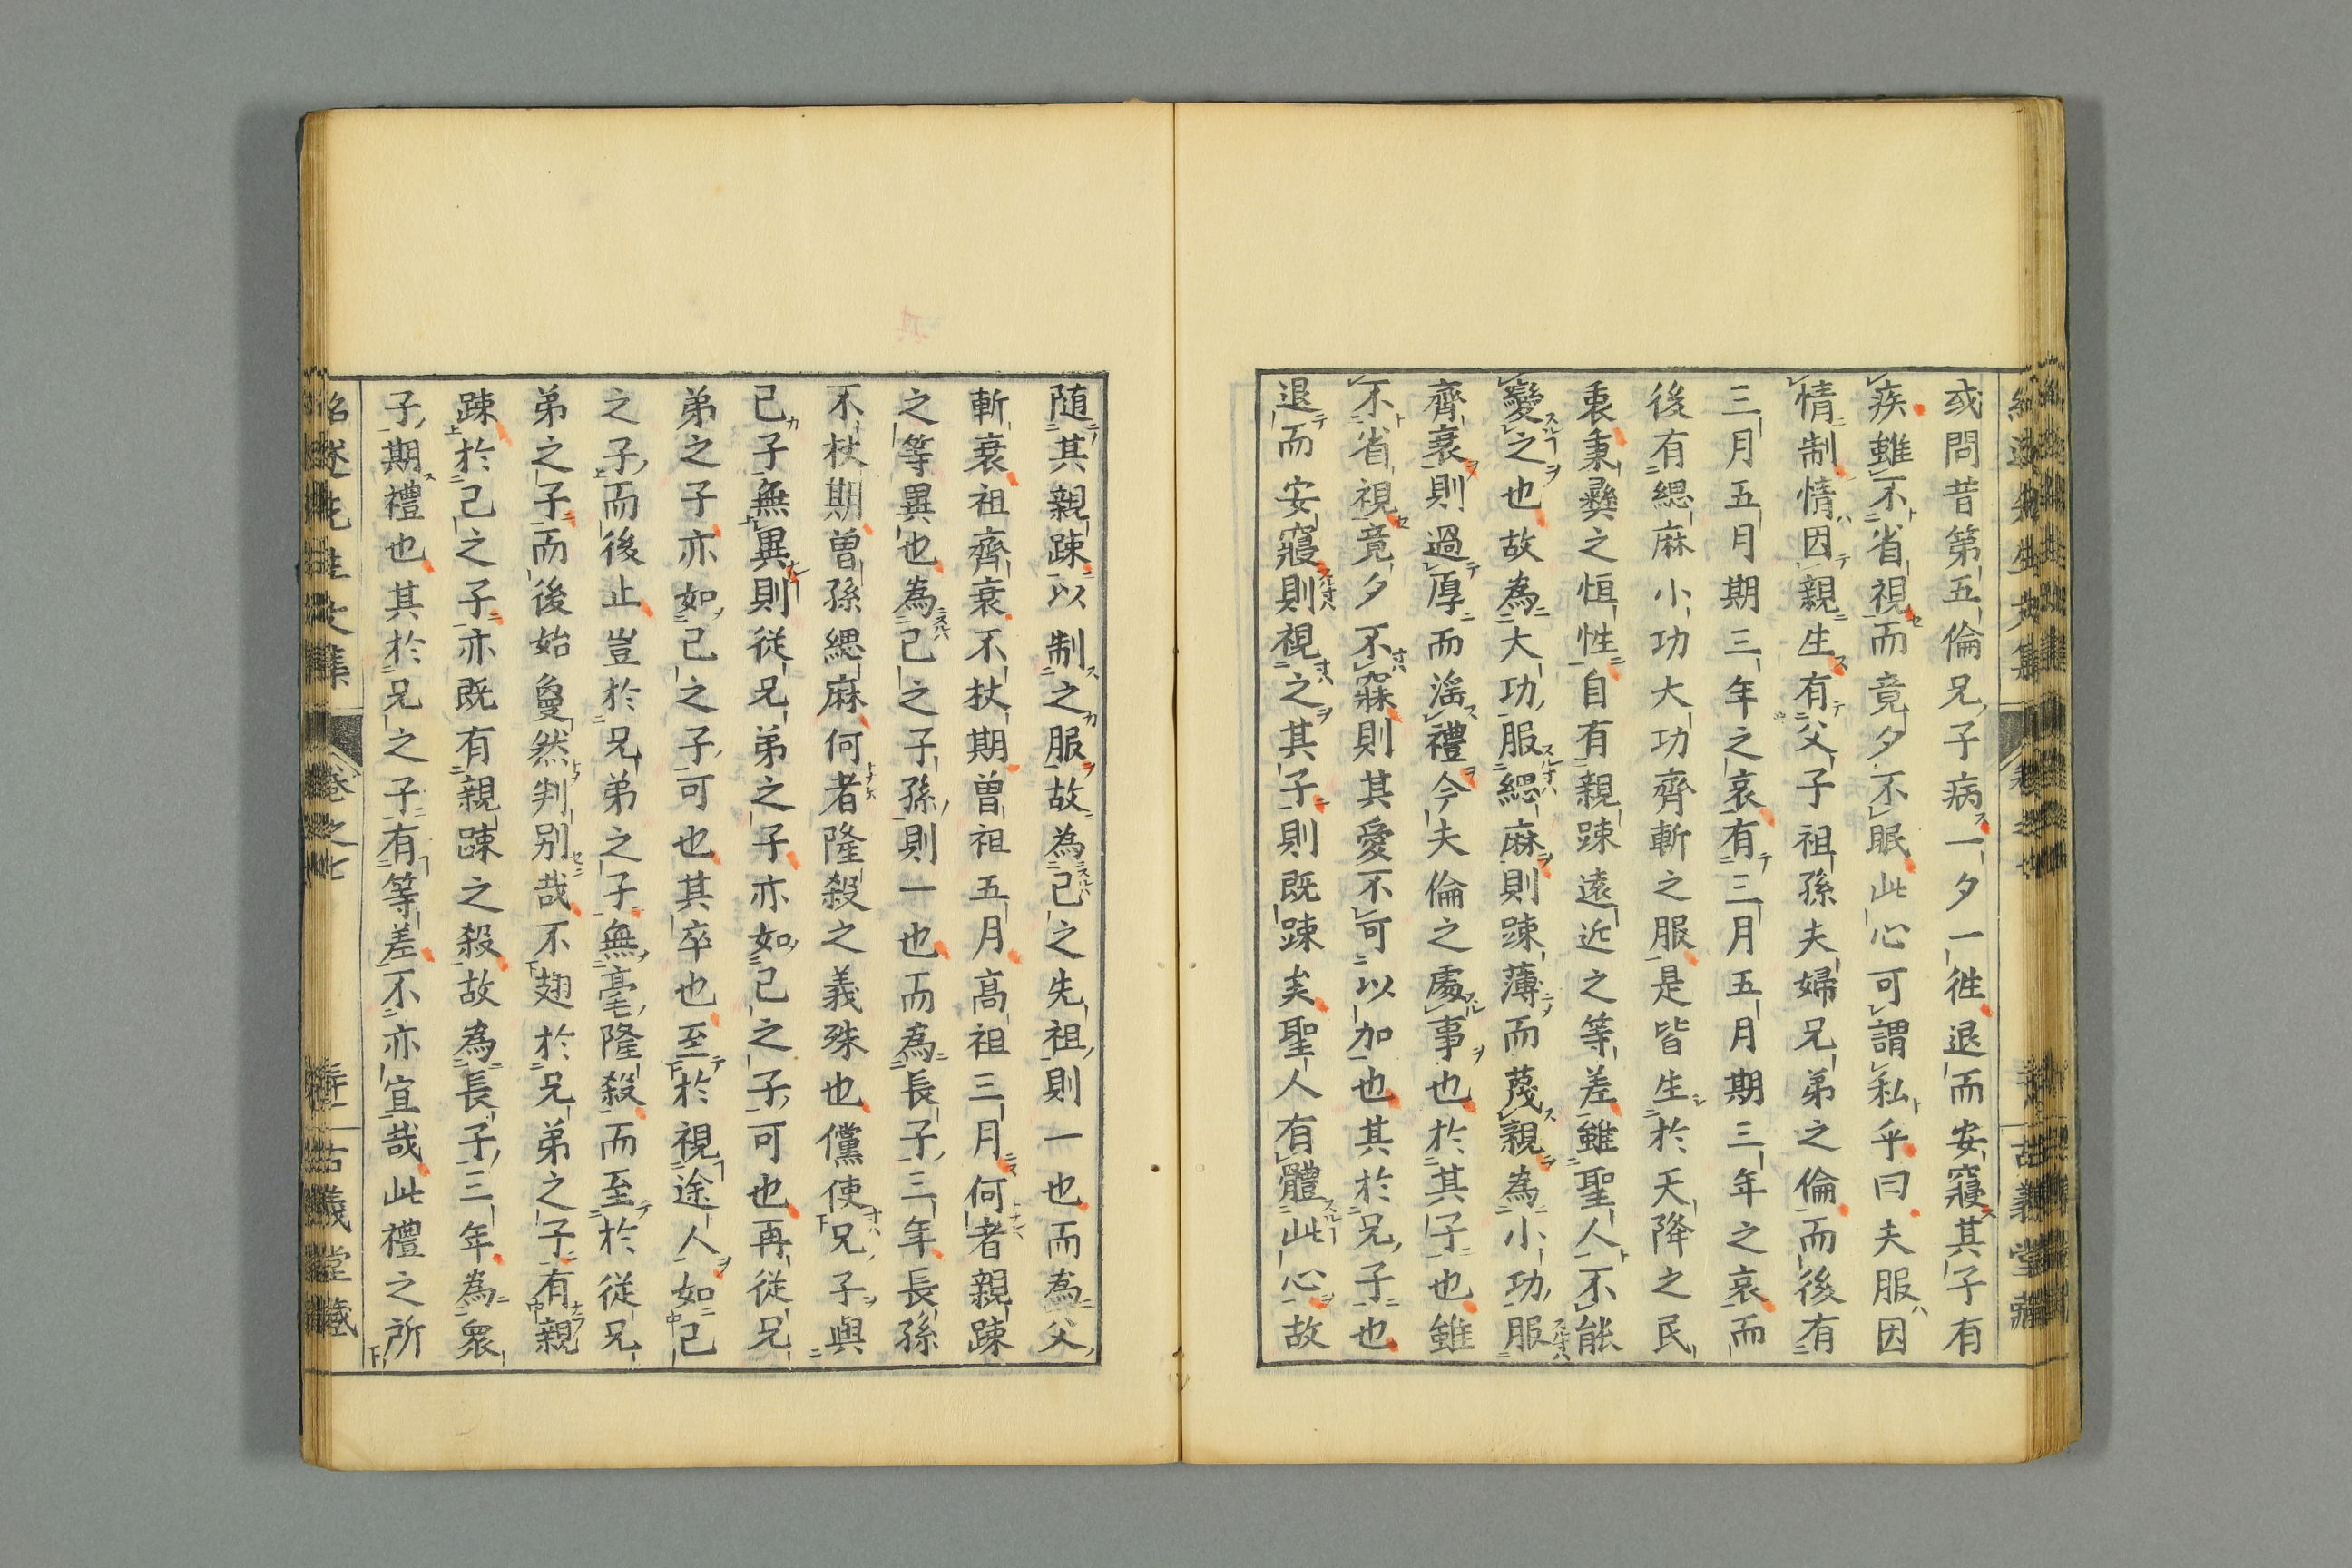 或問昔第五倫兄子病一夕一徃退而安寢其子有
疾雖不省視而竟夕不眠此心可謂私乎曰夫服因
情制情因親生有父子祖孫夫婦兄弟之倫而後有
三月五月期三年之哀有三月五月期三年之哀而
後有緦麻小功大功齊斬之服是皆生於天降之民
衷秉彝之恒性自有親踈遠近之等差雖聖人不能
變之也故為大功服緦麻則踈薄而蔑親為小功服
齊衰則過厚而滛禮今夫倫之處事也於其子也雖
不省視竟夕不寐則其愛不可以加也其於兄子也
退而安寢則視之其子則既踈矣聖人有體此心故
随其親踈以制之服故為己之先祖則一也而為父
斬衰祖齊衰不杖期曽祖五月高祖三月何者親踈
之等異也為己之子孫則一也而為長子三年長孫
不杖期曽孫緦麻何者隆殺之義殊也儻使兄子與
己子無異則從兄弟之子亦如己之子可也再從兄
弟之子亦如己之子可也其卒也至於視途人如己
之子而後止豈於兄弟之子無毫隆殺而至於從兄
弟之子而後始敻然判别哉不翅於兄弟之子有親
踈於己之子亦既有親踈之殺故為長子三年為衆
子期禮也其於兄之子有等差不亦宜哉此禮之所
紹述先生文集 卷之七 古義堂藏